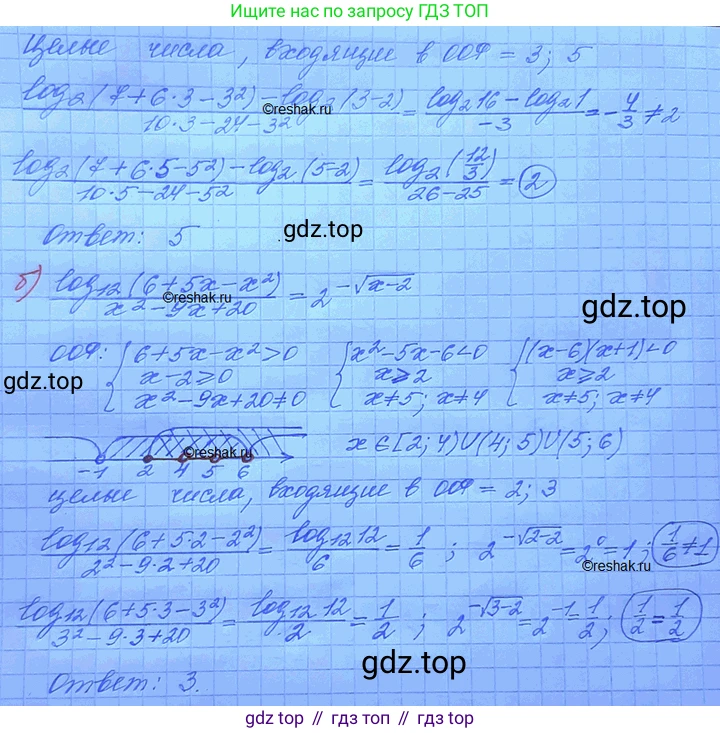 Ищите нас по запросу ГДЗ ТОП
Целые числа, входящие в ООФ = 3; 5
log₂(7+6·3−3²)−log₂(3−2) / 10·3−24−3² = log₂16−log₂1 / −3 = −4/3 ≠ 2
©reshak.ru
log₂(7+6·5−5²)−log₂(5−2) / 10·5−24−5² = log₂(12/3) / 26−25 = 2
gdz.top
Ответ: 5
б) log₁₂(6+5x−x²) / x²−9x+20 = 2^(−√(x−2))
©reshak.ru
gdz.top
ООФ: { 6+5x−x²>0 { x²−5x−6<0 { (x−6)(x+1)<0
x−2⩾0 x⩾2 x⩾2
x²−9x+20≠0 x≠5; x≠4 x≠5; x≠4
gdz.top
©reshak.ru
−1 2 4 5 6 x∈[2;4)∪(4;5)∪(5;6)
целые числа, входящие в ООФ = 2; 3
log₁₂(6+5·2−2²) / 2²−9·2+20 = log₁₂12 / 6 = 1/6 ; 2^(−√(2−2)) = 2⁰ = 1 ; 1/6 ≠ 1
©reshak.ru
log₁₂(6+5·3−3²) / 3²−9·3+20 = log₁₂12 / 2 = 1/2 ; 2^(−√(3−2)) = 2^(−1) = 1/2 ; 1/2 = 1/2
gdz.top
Ответ: 3.
gdz.top // гдз топ // gdz.top